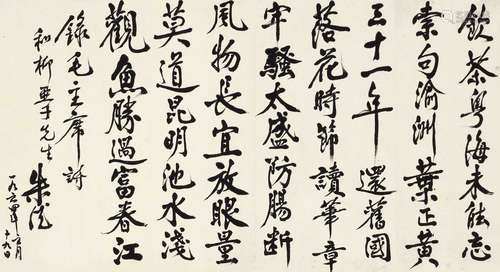 飲茶粤海未能忘
索句渝洲葉正黄
三十一年還舊國
落花時節讀華章
牢騷太盛防腸斷
風物長宜放眼量
莫道昆明池水淺
觀魚勝過富春江
錄毛主席詩
和柳亞子先生
朱
一九六四年月十九日